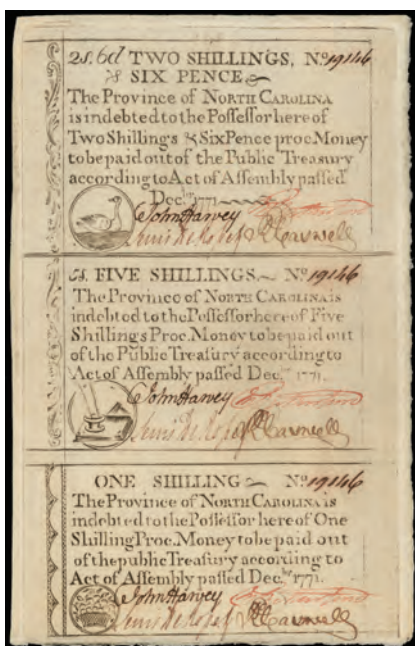 2s. 6d TWO SHILLINGS, No. 19146
& SIX PENCE
The Province of NORTH CAROLINA
is indebted to the Possessor here of
Two Shillings & Six Pence proc. Money
to be paid out of the Public Treasury
according to Act of Assembly passed
Decbr. 1771
John Harvey
Lewis De Rosset R Caswell
5s. FIVE SHILLINGS. No. 19146
The Province of NORTH CAROLINA is
indebted to the Possessor here of Five
Shillings Proc. Money to be paid out
of the Public Treasury according to
Act of Assembly passed Decbr. 1771.
John Harvey
Lewis De Rosset R Caswell
ONE SHILLING No. 19146
The Province of NORTH CAROLINA is
indebted to the Possessor here of One
Shilling Proc. Money to be paid out
of the public Treasury according to
Act of Assembly passed Decbr. 1771.
John Harvey
Lewis De Rosset R Caswell